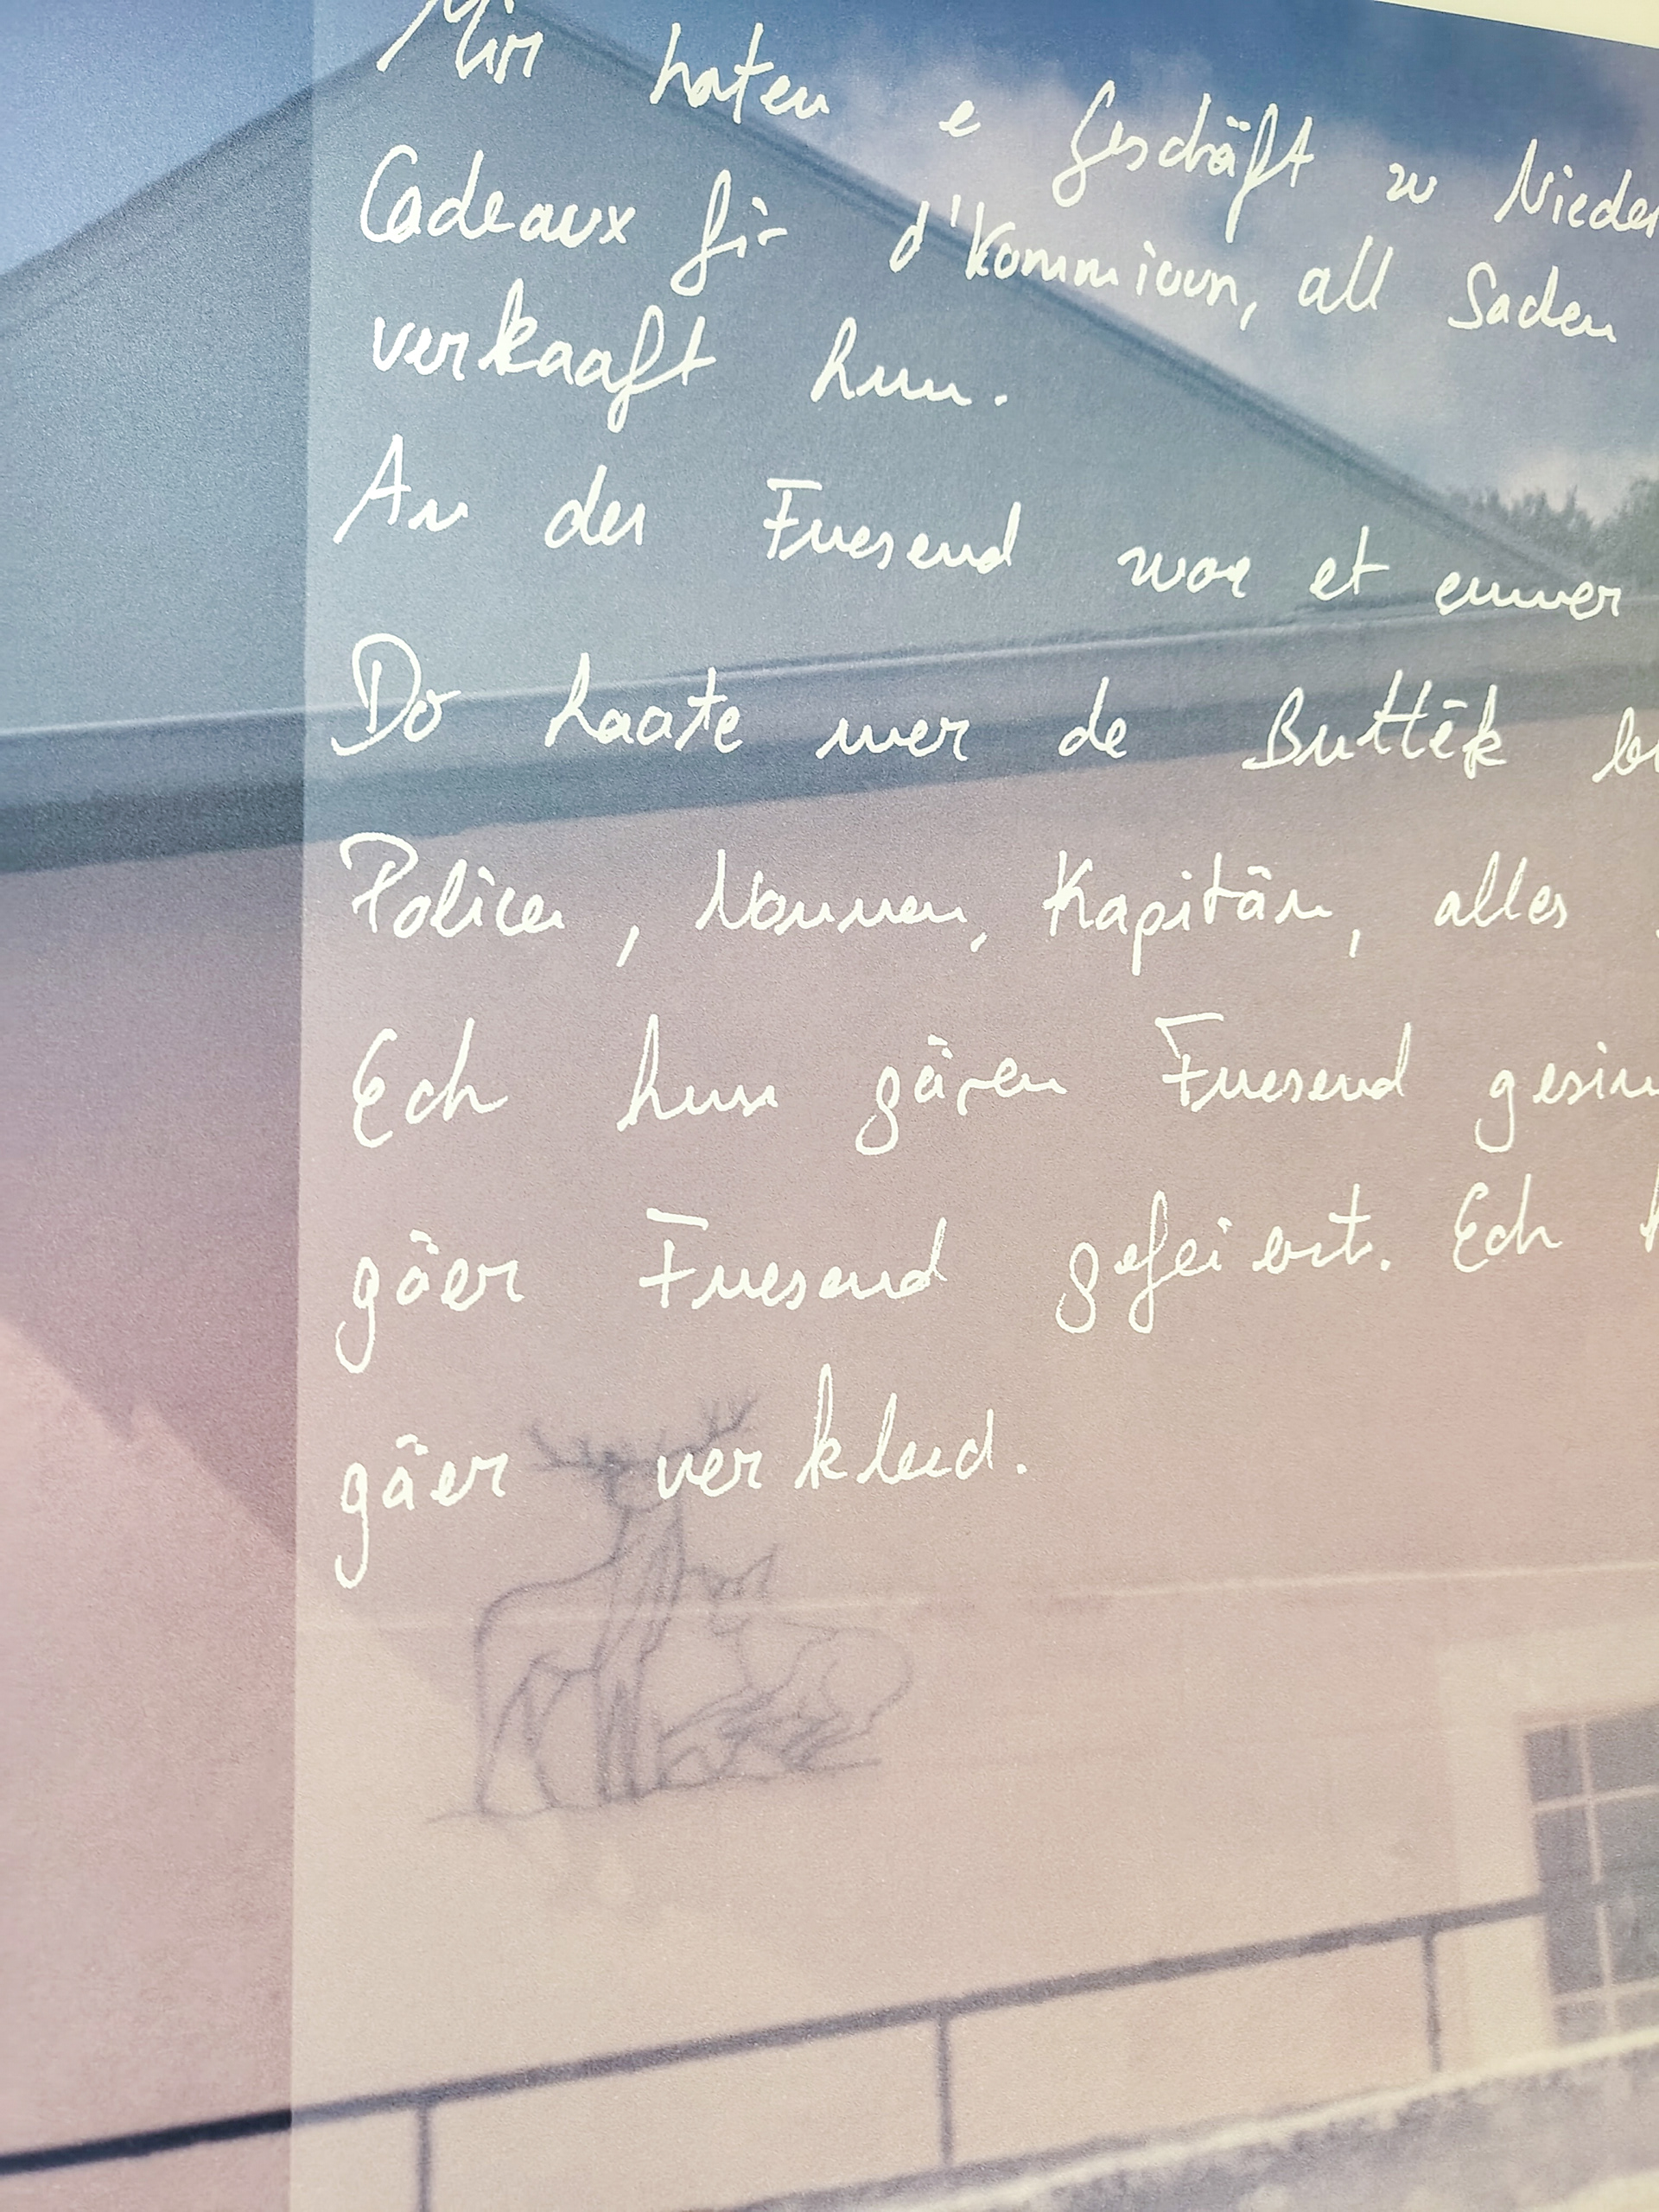 Mir haten e Geschäft zu Nieder
Cadeaux fir d'Kommioun, all Saachen
verkaaft hun.
An der Fuesend war et ëmmer
Do haate mer de Butték
Police, Nonnen, Kapitän, alles
Ech hun gären Fuesend
gäer Fuesend gefeiert. Ech
gäer verkleed.